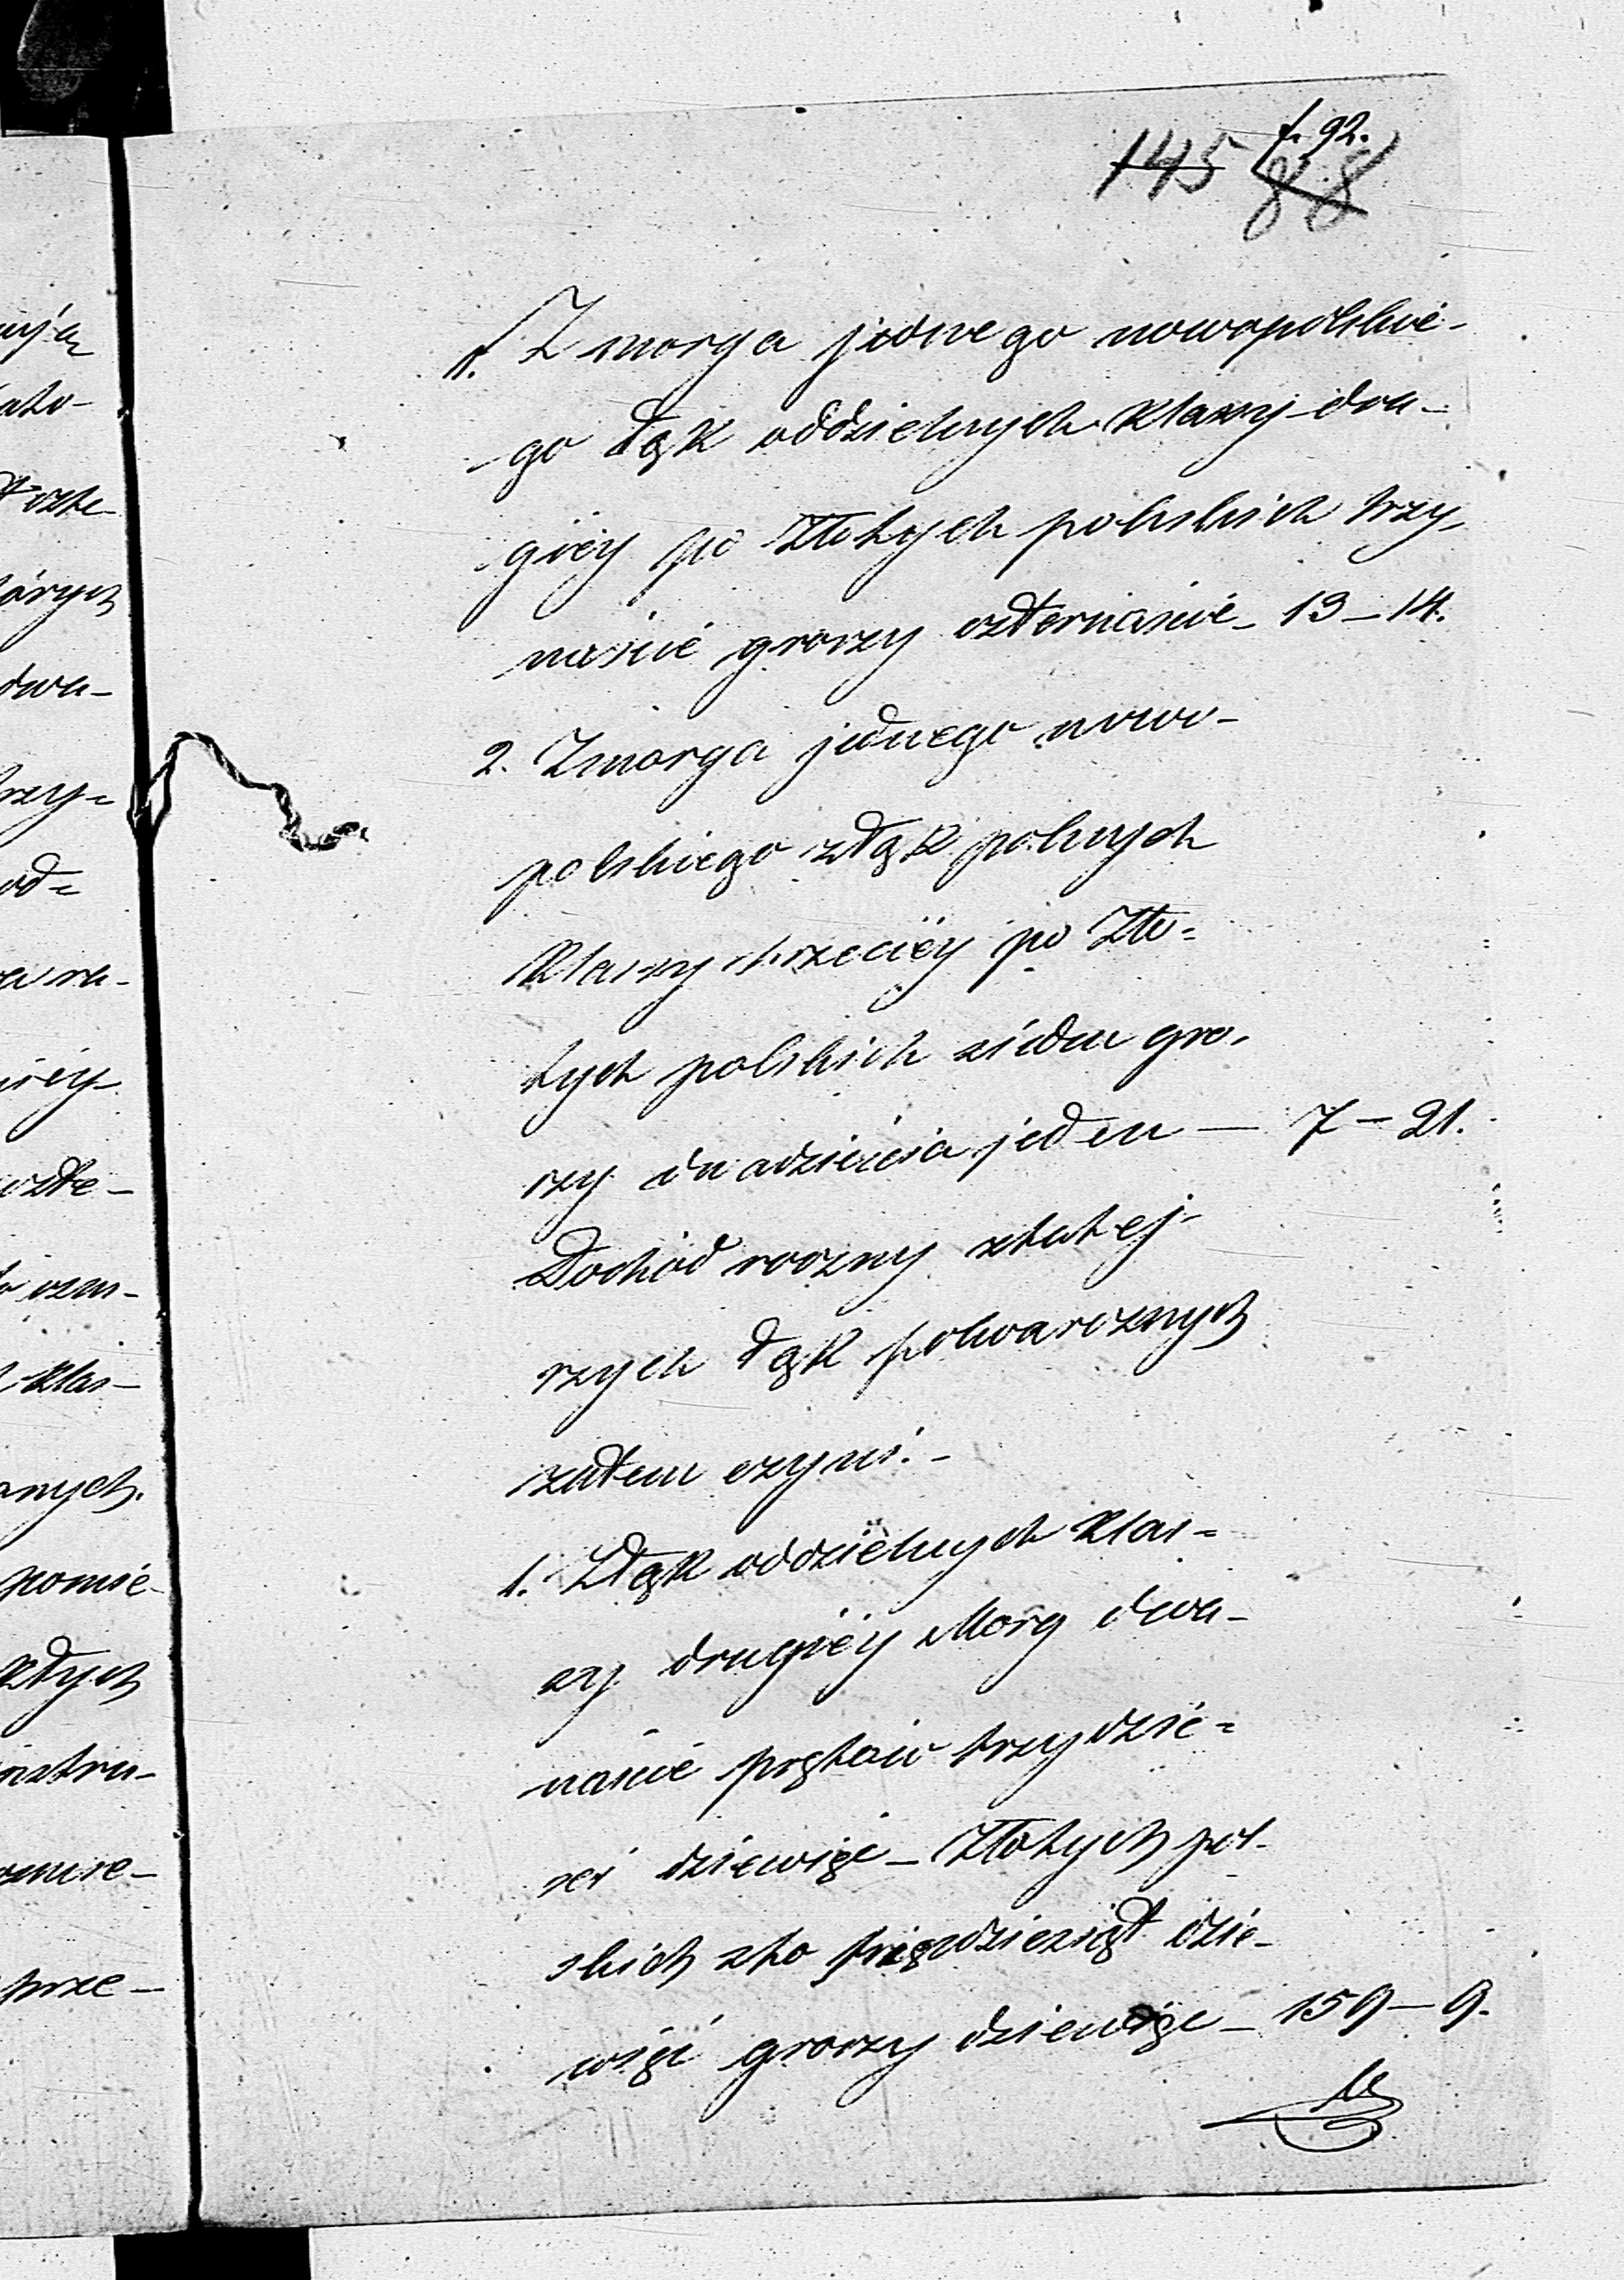 f. 92.
145 88
1. Z morga jednego nowopolskie-
-go łąk oddzielnych klassy dru-
giéy po złotych polskich trzy-
naście groszy czternaście - 13 - 14.
2. Z morga jednego nowo-
polskiego z łąk polnych
klassy trzeciéy po Zło=
tych polskich siedm gro-
szy dwadzieścia jeden — 7 - 21.
Dochód roczny z tutej-
szych łąk folwarcznych
zatem czyni. -
1. Z łąk oddzielnych klas=
sy drugiéy Morg dwa-
naście prętów trzydzie=
ści dziewięć - Złotych pol-
skich sto pięćdziesiąt dzie-
więć groszy dziewięć - 159 - 9.
ują
ato-
czte-
tórych
dwa-
trzy=
od=
iéy-
czte-
klas-
anych.
pomie-
prze-